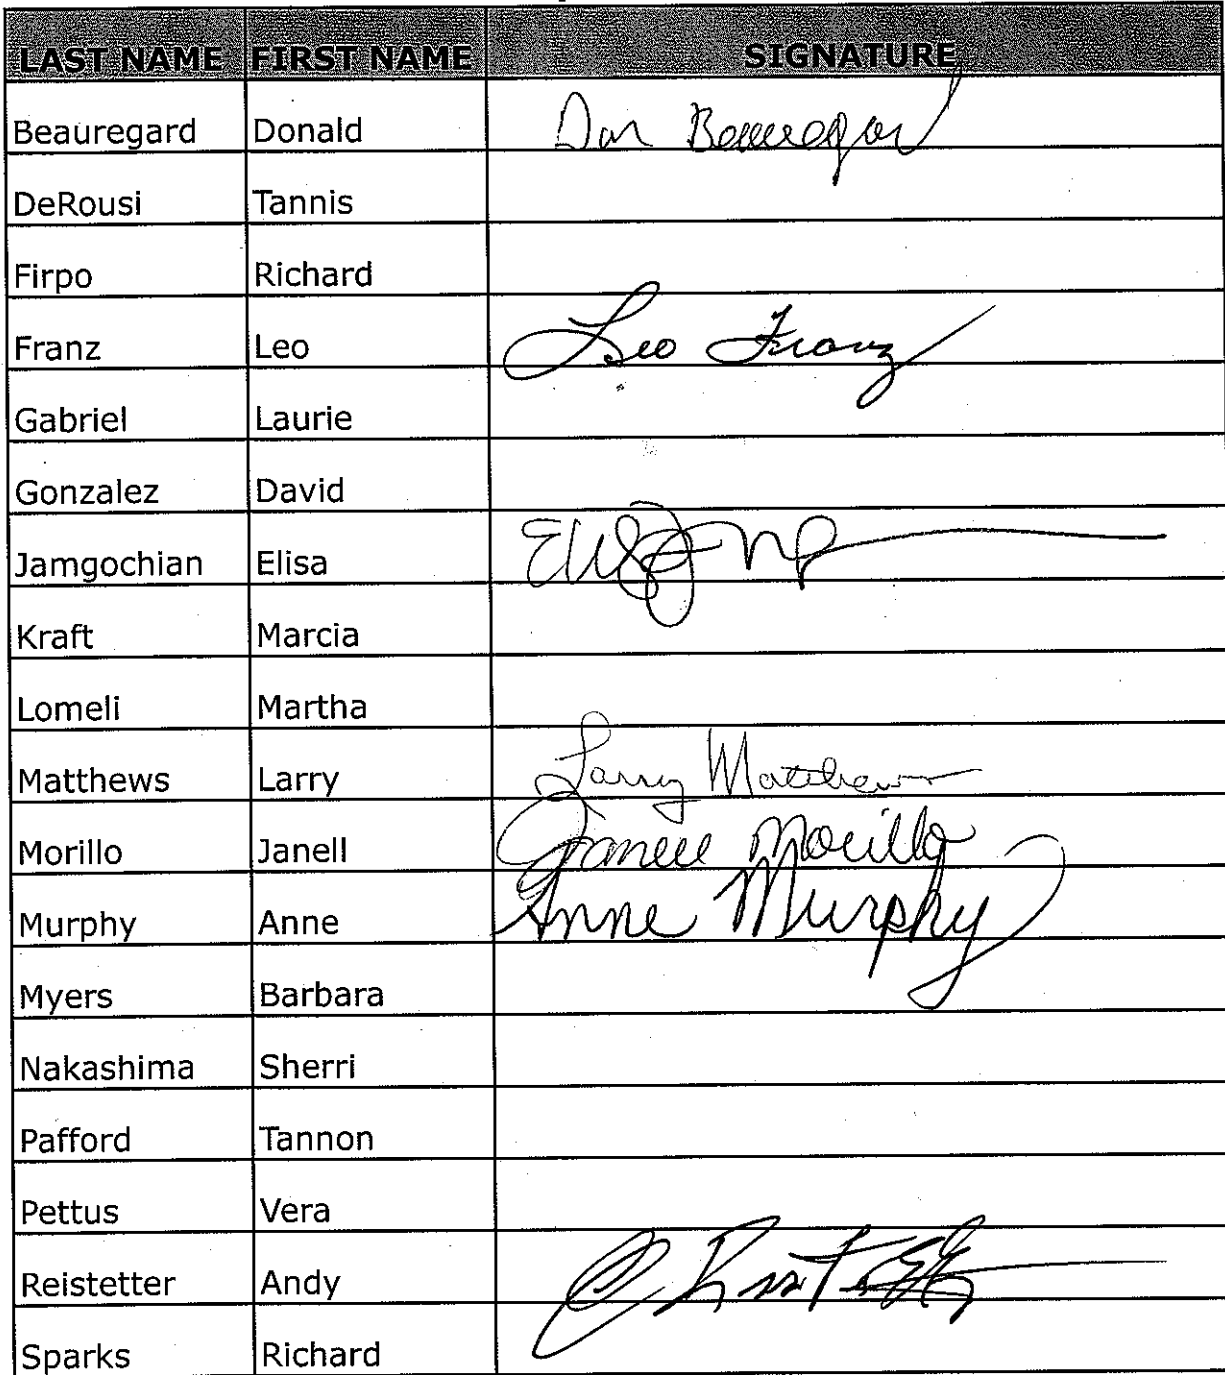 LAST NAME FIRST NAME SIGNATURE
Beauregard Donald Don Beauregard
DeRousi Tannis
Firpo Richard
Franz Leo Leo Franz
Gabriel Laurie
Gonzalez David
Jamgochian Elisa
Kraft Marcia
Lomeli Martha
Matthews Larry Larry Matthews
Morillo Janell Janell Morillo
Murphy Anne Anne Murphy
Myers Barbara
Nakashima Sherri
Pafford Tannon
Pettus Vera
Reistetter Andy
Sparks Richard